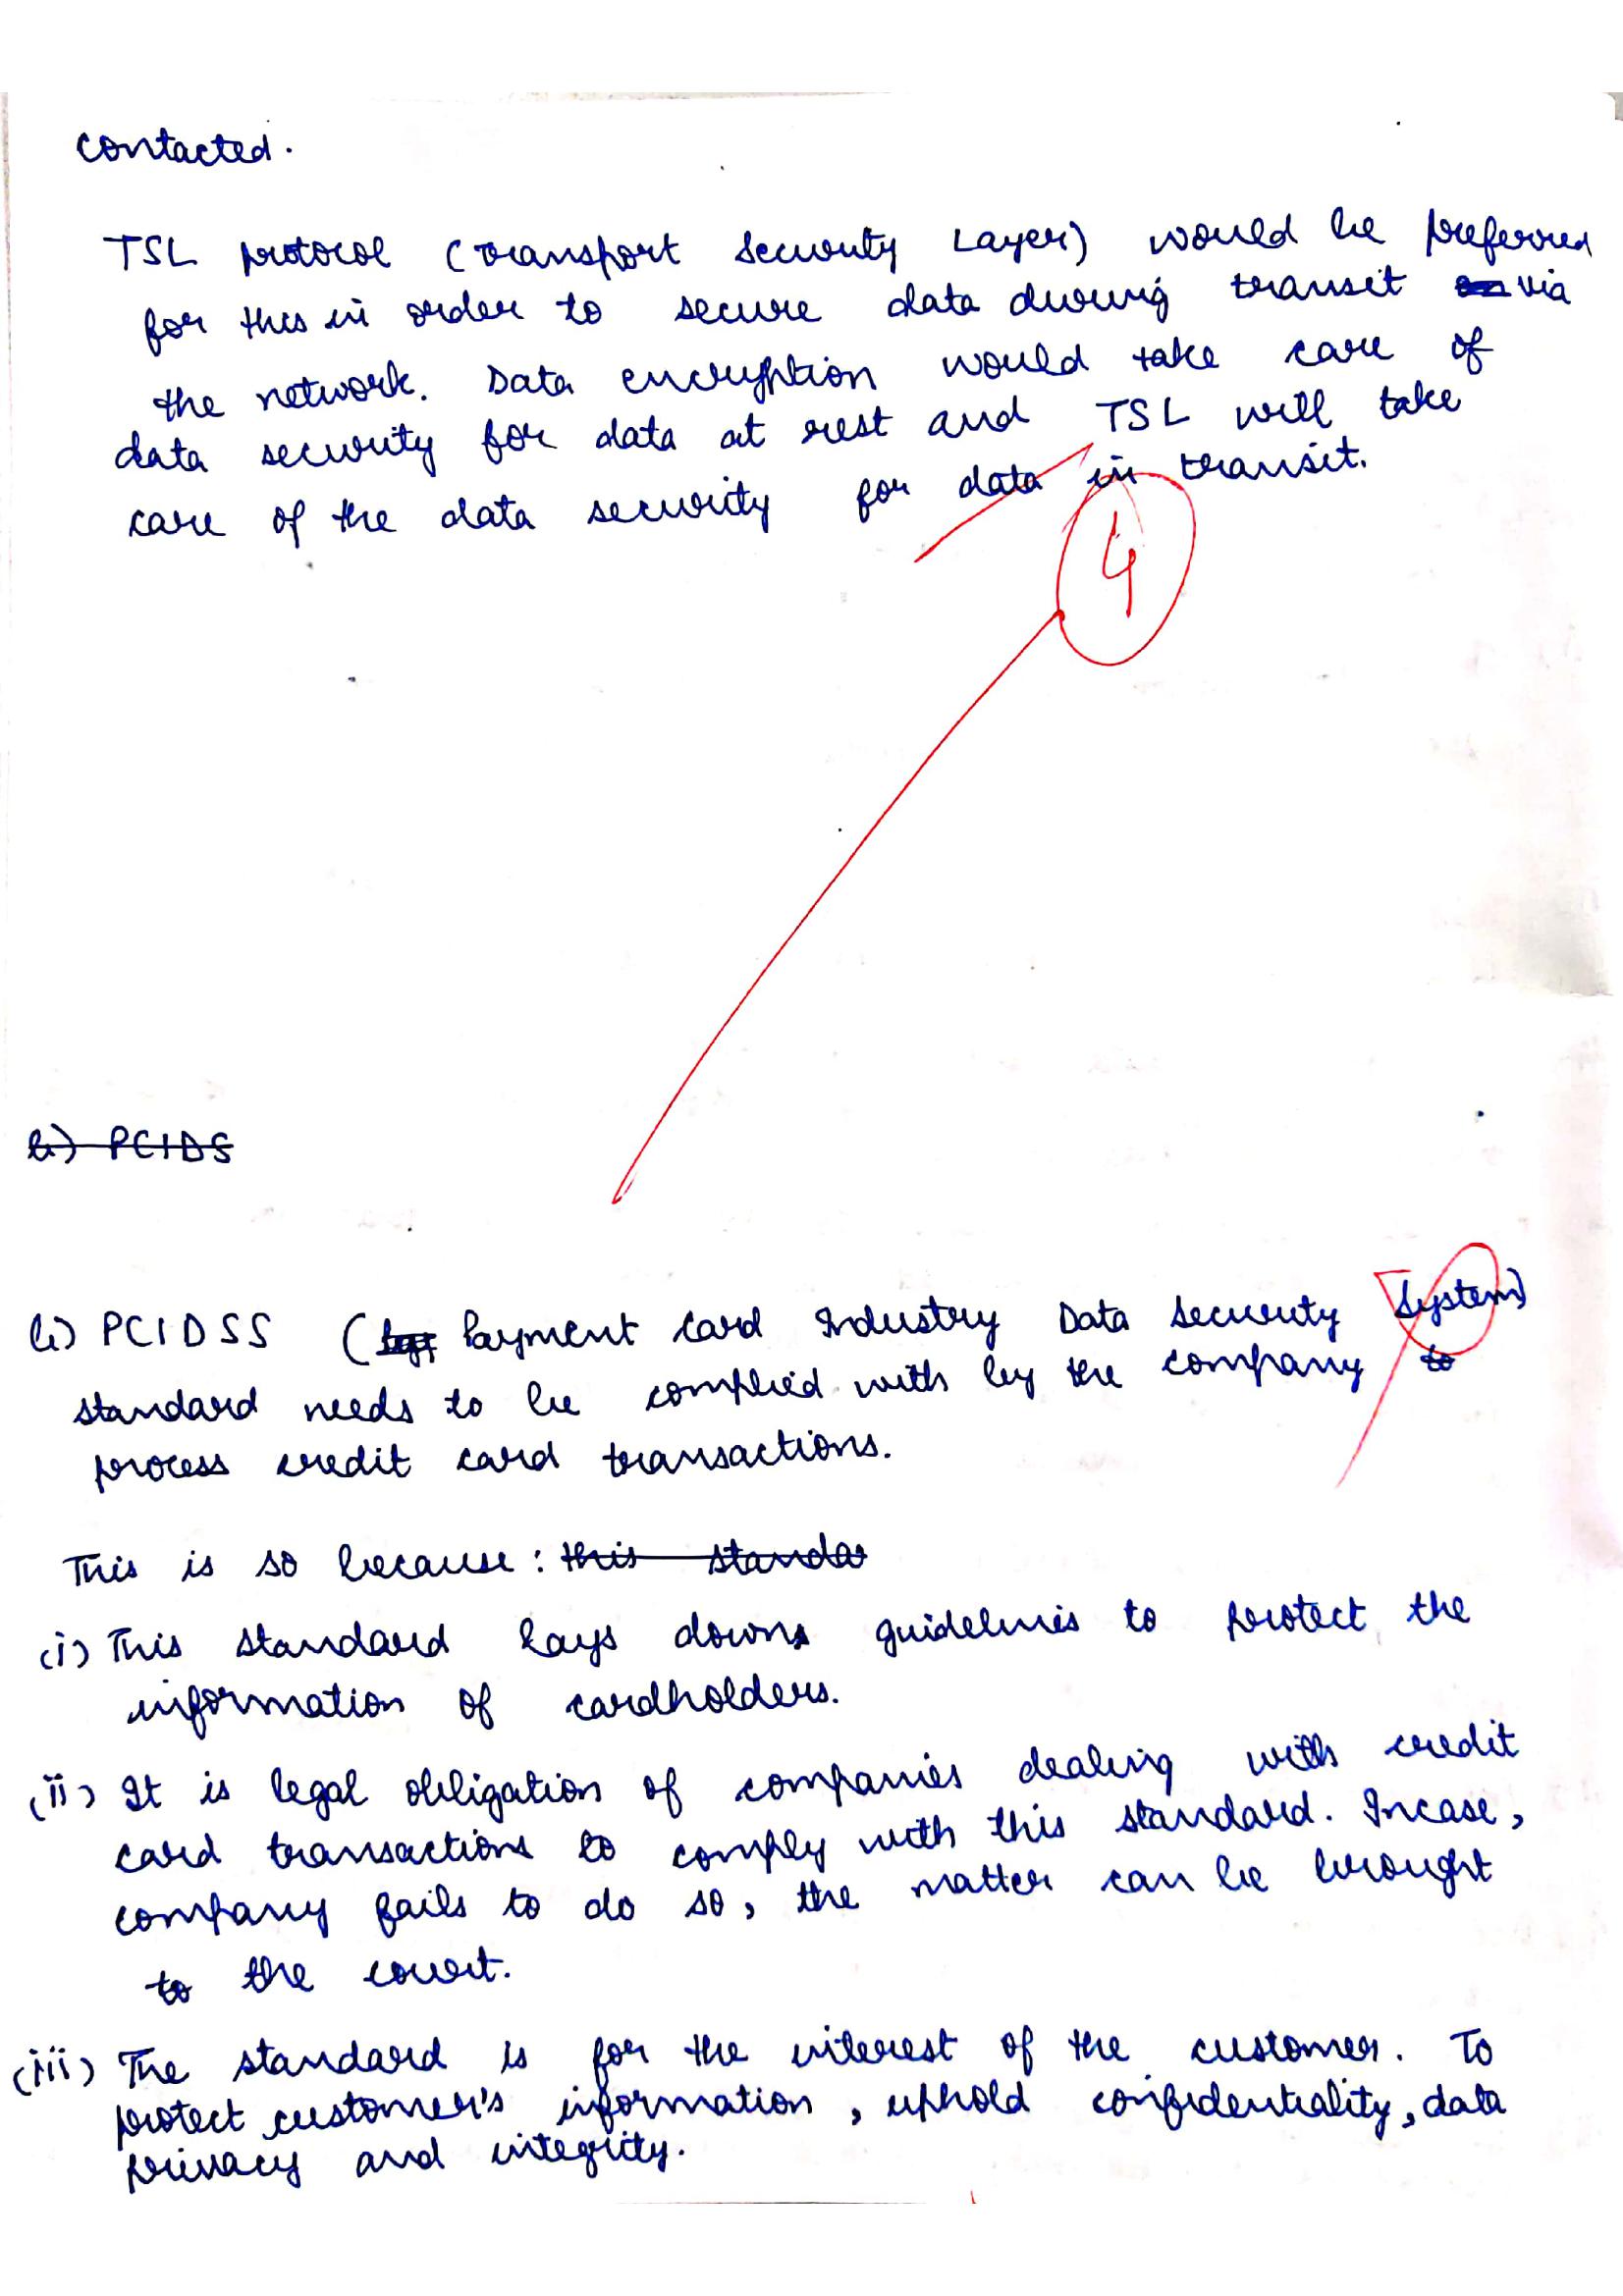 contacted.
TSL protocol (Transport Security Layer) would be preferred
for this in order to secure data during transit via
the network. Data encryption would take care of
data security for data at rest and TSL will take
care of the data security for data in transit.
4
b) PCIDS
b) PCIDSS (Payment Card Industry Data Security System)
standard needs to be complied with by the company to
process credit card transactions.
This is so because: this standar
(i) This standard lays down guidelines to protect the
information of cardholders.
(ii) It is legal obligation of companies dealing with credit
card transactions to comply with this standard. Incase,
company fails to do so, the matter can be brought
to the court.
(iii) The standard is for the interest of the customer. To
protect customer's information, uphold confidentiality, data
privacy and integrity.